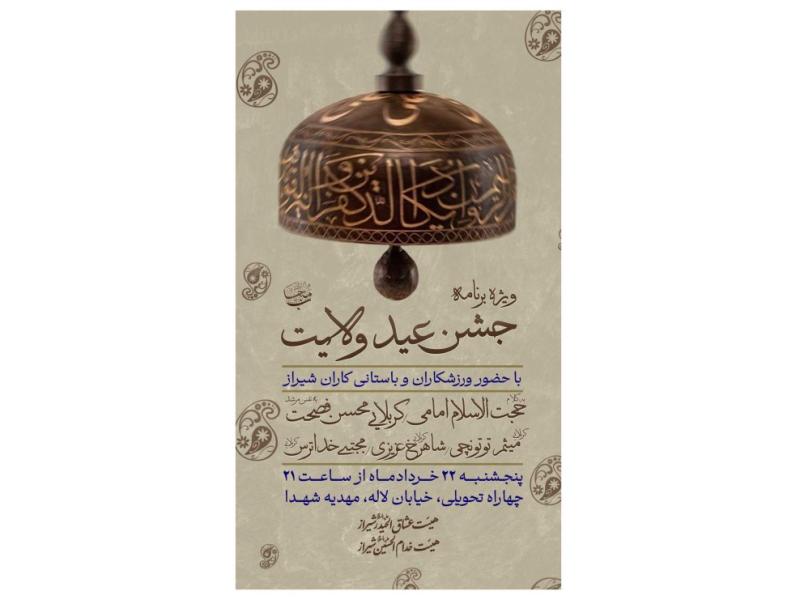 ویژه برنامه
جشن عید ولایت
با حضور ورزشکاران و باستانی کاران شیراز
به کلام
به نفس مرشد
حجت الاسلام امامی کربلایی محسن فصاحت
کربلایی میثم توتونچی کربلایی شاهرخ عزیزی کربلایی مجتبی خداترس
پنجشنبه ۲۲ خردادماه از ساعت ۲۱
چهاراه تحویلی، خیابان لاله، مهدیه شهدا
هیئت عشاق الحیدر شیراز
هیئت خدام الحسین شیراز